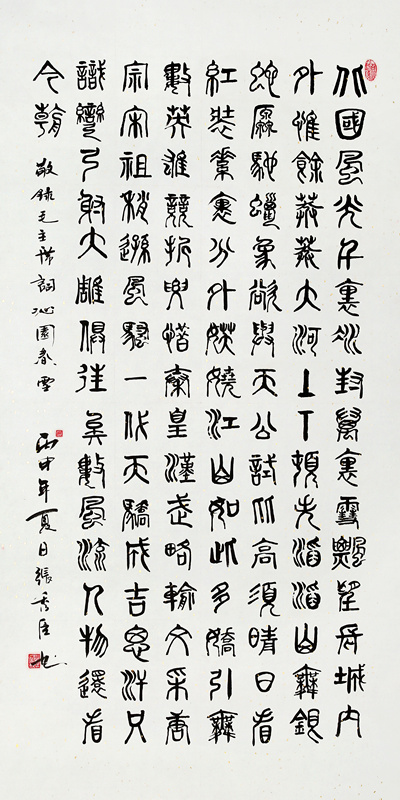 北國風光千裏冰封萬裏雪飄望長城內
外惟餘莽莽大河上下頓失滔滔山舞銀
蛇原馳蠟象欲與天公試比高須晴日看
紅裝素裹分外妖嬈江山如此多嬌引無
數英雄競折腰惜秦皇漢武略輸文采唐
宗宋祖稍遜風騷一代天驕成吉思汗只
識彎弓射大雕俱往矣數風流人物還看
今朝 敬錄毛主席詞沁園春雪 丙申年夏日張秀臣書